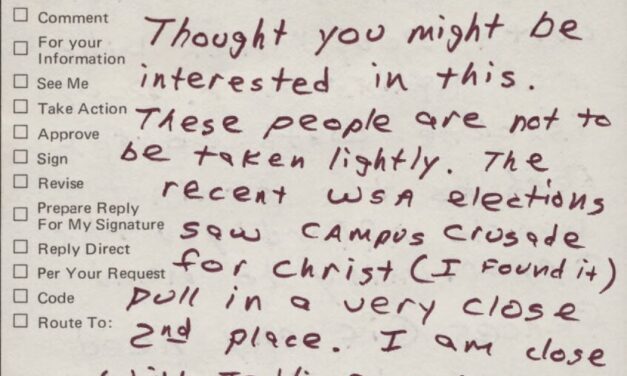 Comment
For your
Information
See Me
Take Action
Approve
Sign
Revise
Prepare Reply
For My Signature
Reply Direct
Per Your Request
Code
Route To:
Thought you might be
interested in this.
These people are not to
be taken lightly. The
recent WSA elections
saw CAmpus Crusade
for Christ (I Found it)
pull in a very close
2nd place. I am close